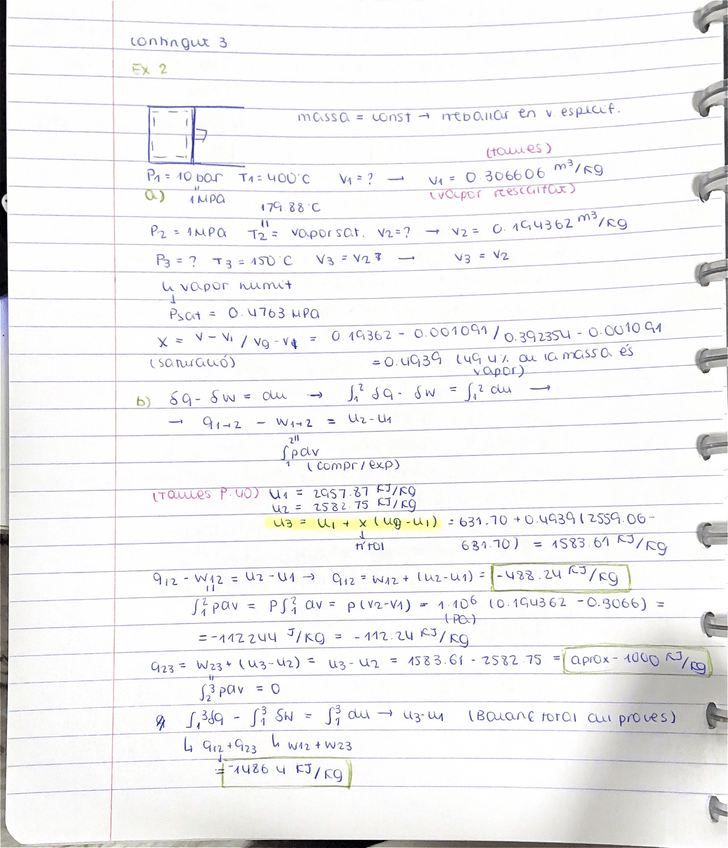 Continugut 3
Ex 2
massa = const → treballar en v especif.
(taules)
P1 = 10 bar T1 = 400°C V1 = ? → V1 = 0.306606 m³/kg
a) 1 MPa 179.88°C (vapor reescalfat)
P2 = 1MPa T2 = vapor sat. V2=? → V2 = 0.194362 m³/kg
P3 = ? T3 = 150°C V3 = V2 → V3 = V2
↳ vapor humit
↓
Psat = 0.4763 MPa
X = V - Vl / Vg - Vl = 0.19362 - 0.001091 / 0.392354 - 0.001091
(saturació) = 0.4939 (49.4% de la massa és
vapor)
b) δq - δw = du → ∫₁² δq - δw = ∫₁² du →
→ q1→2 - w1→2 = u2 - u1
∫₁² pdv
(compr/exp)
(Taules P.40) u1 = 2957.87 KJ/Kg
u2 = 2582.75 KJ/Kg
u3 = ul + x (ug - ul) = 631.70 + 0.4939 (2559.06 -
↓
títol 631.70) = 1583.61 KJ/Kg
q12 - w12 = u2 - u1 → q12 = w12 + (u2 - u1) = -488.24 KJ/Kg
∫₁² pdv = P∫₁² dv = p(v2-v1) = 1·10⁶ (0.194362 - 0.3066) =
(Pa)
= -112244 J/Kg = -112.24 KJ/Kg
q23 = w23 + (u3 - u2) = u3 - u2 = 1583.61 - 2582.75 = aprox - 1000 KJ/Kg
∫₂³ pdv = 0
∫₁³ δq - ∫₁³ δw = ∫₁³ du → u3 - u1 (Balanç total del procés)
↳ q12 + q23 ↳ w12 + w23
= -1486.4 KJ/Kg